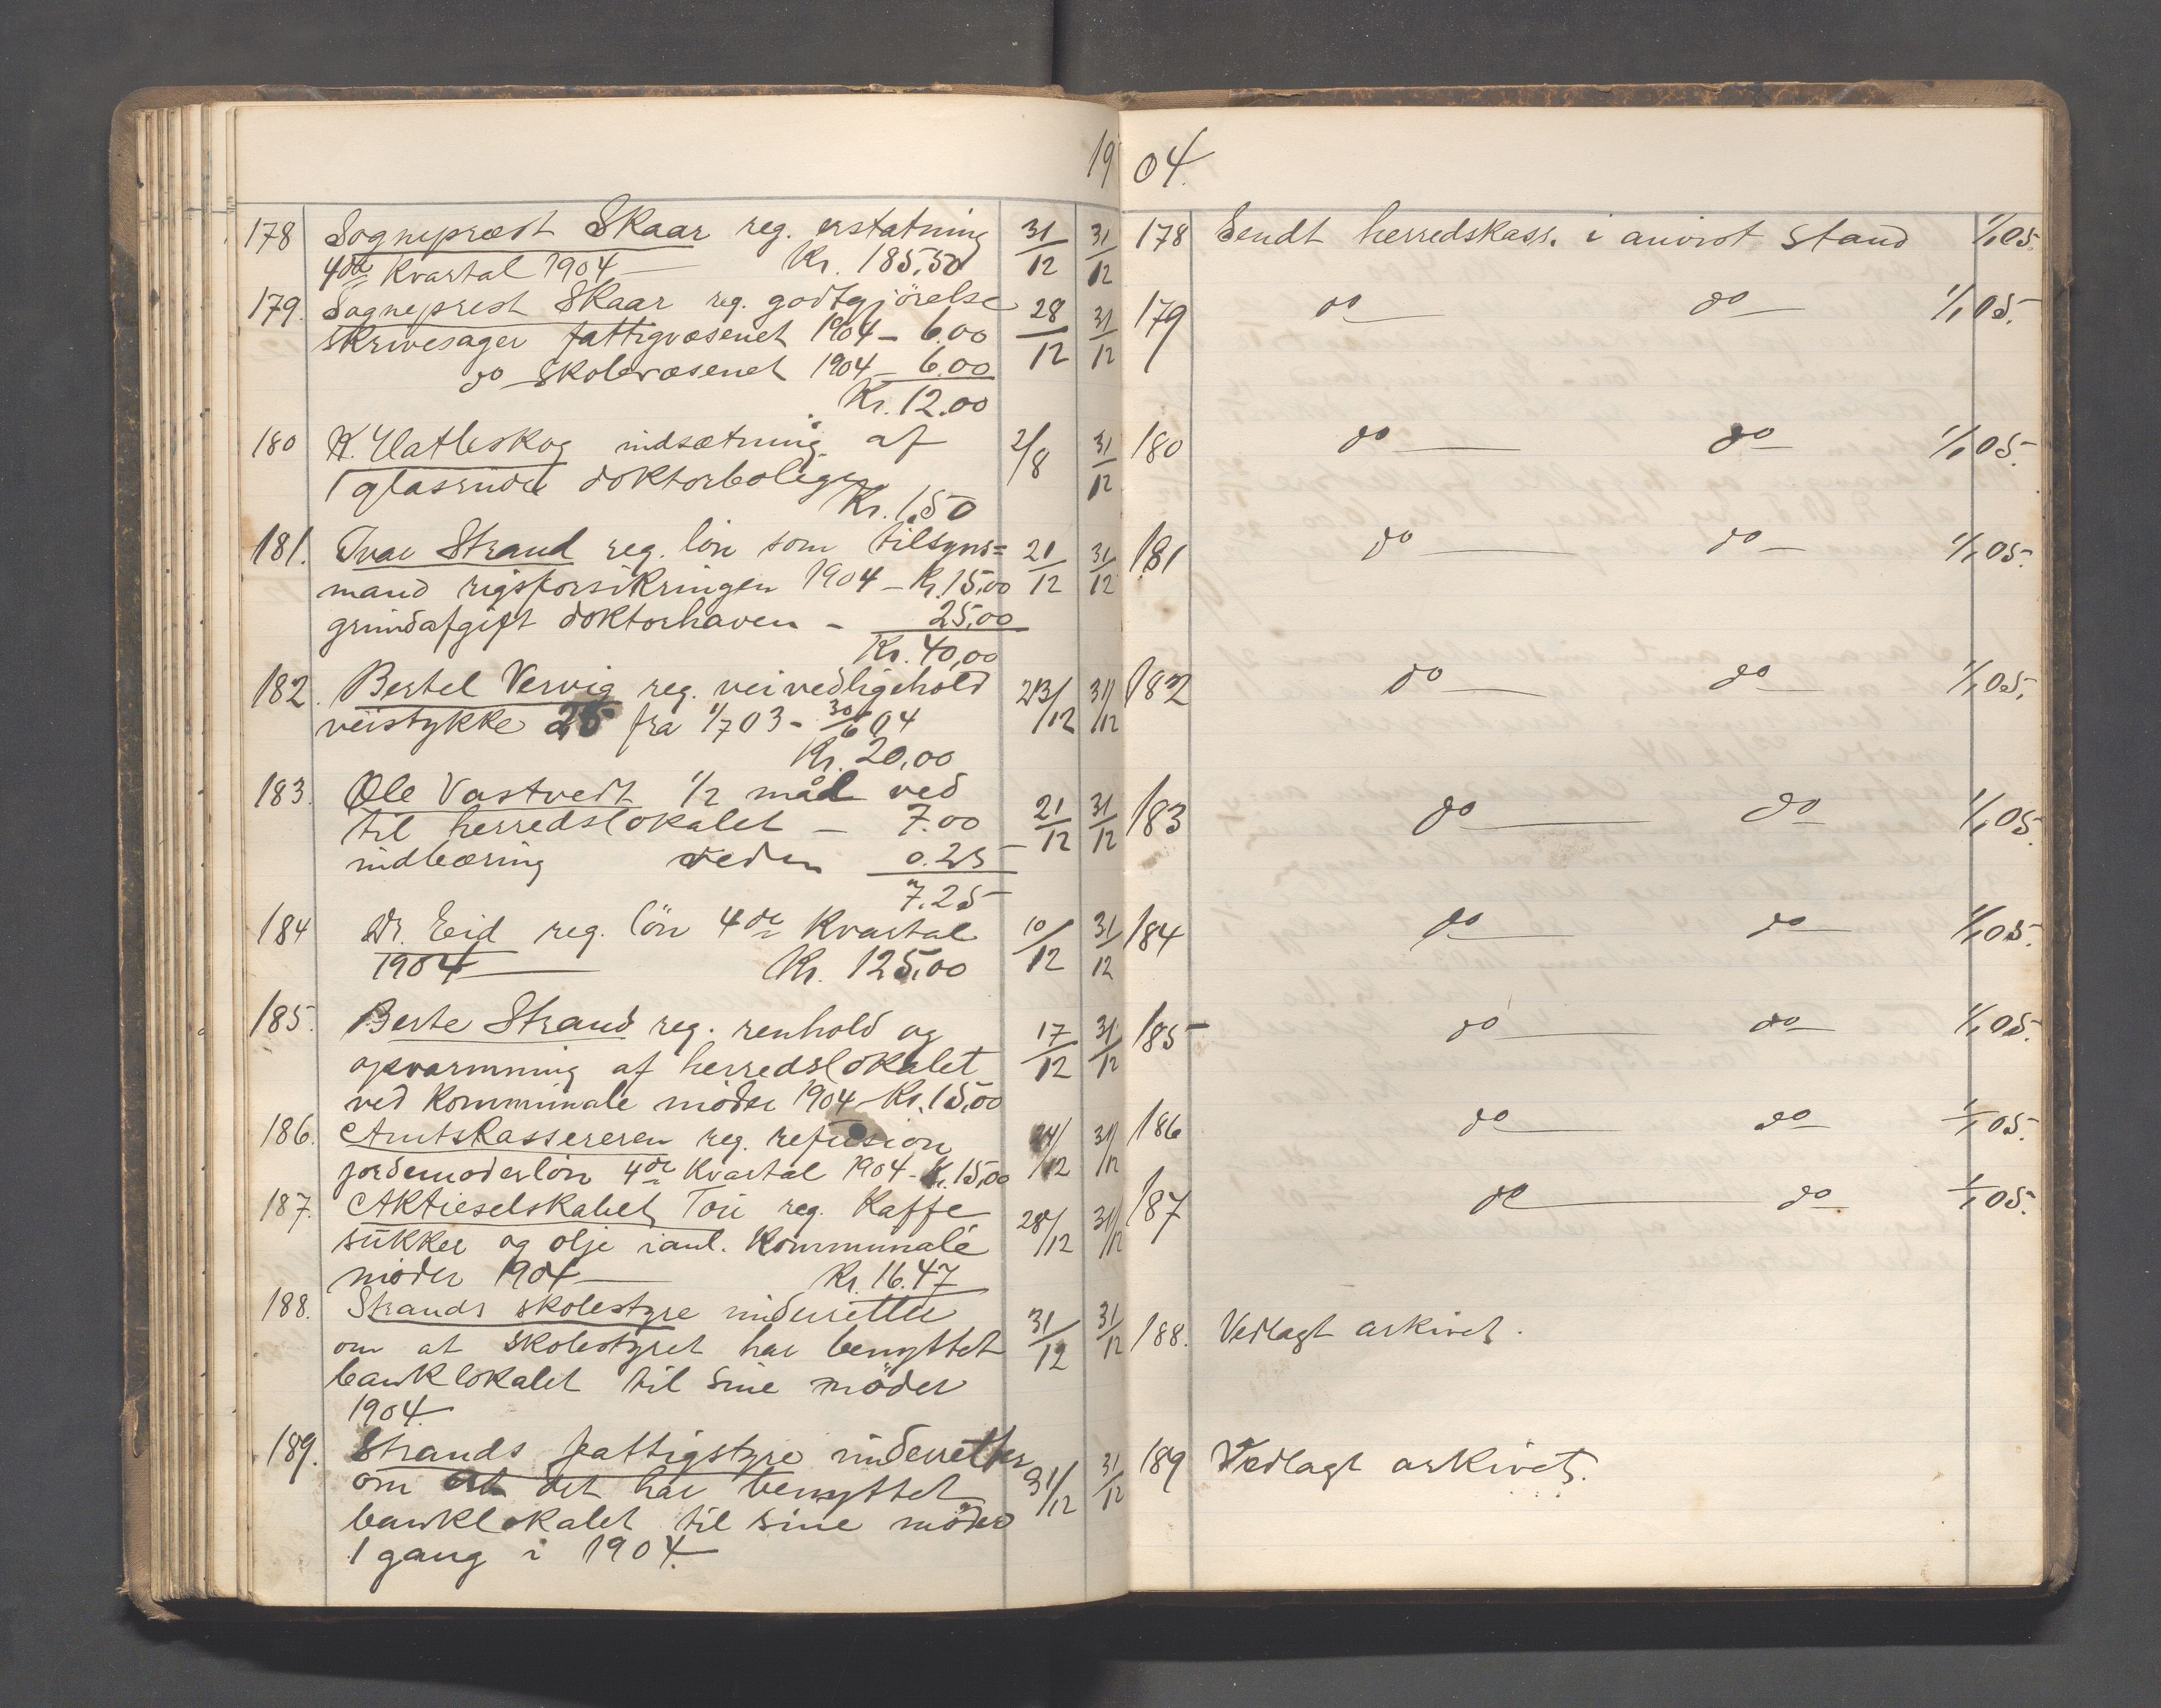 1904.
178 Sogneprest Skaar reg. erstatning 31/12 31/12
4de Kvartal 1904 — Kr. 185,50
179. Sogneprest Skaar reg. godtgjörelse 28/12 31/12
skrivesager fattigvæsenet 1904 – 6.00
do skolevæsenet 1904 – 6.00
Kr. 12.00
180 K. Hatleskog indsætning af 2/8 31/12
1 glasrude doktorboligen
Kr. 1,50
181. Ivar Strand reg. lön som tilsyns= 21/12 31/12
mand rigsforsikringen 1904 – Kr. 15,00
grundafgift doktorhaven – 25,00
Kr. 40,00
182. Bertel Vervig reg. veivedligehold 23/12 31/12
veistykke 25 fra 1/7 03 – 30/6 04
Kr. 20,00
183. Ole Vastvedt 1/2 mål ved 21/12 31/12
til herredslokalet – 7.00
indbæring veden 0.25
7.25
184 Dr. Eid reg. lön 4de Kvartal 10/12 31/12
1904 — Kr. 125,00
185. Berte Strand reg. renhold og 17/12 31/12
opvarmning af herredslokalet
ved Kommunale möder 1904 – Kr. 15,00
186. Amtskassereren reg. refusion 24/12 31/12
jordemoderlön 4de Kvartal 1904 – Kr. 15,00
187. Aktieselskabet Tou reg. Kaffe 28/12 31/12
sukker og olje ianl. Kommunale
möder 1904 — Kr. 16.47
188. Strands skolestyre underretter 31/12 31/12
om at skolestyret har benyttet
banklokalet til sine möder
1904.
189. Strands fattigstyre underretter 31/12 31/12
om at det har benyttet
banklokalet til sine möder
1 gang i 1904.
178 Sendt herredskass. i anvist stand 1/1 05.
179 do — do — 1/1 05.
180 do — do — 1/1 05.
181 do — do — 1/1 05.
182 do — do — 1/1 05.
183 do — do 1/1 05.
184 do — do — 1/1 05.
185 do — do — 1/1 05.
186 do — do — 1/1 05.
187 do — do — 1/1 05.
188. Vedlagt arkivet.
189 Vedlagt arkivet.